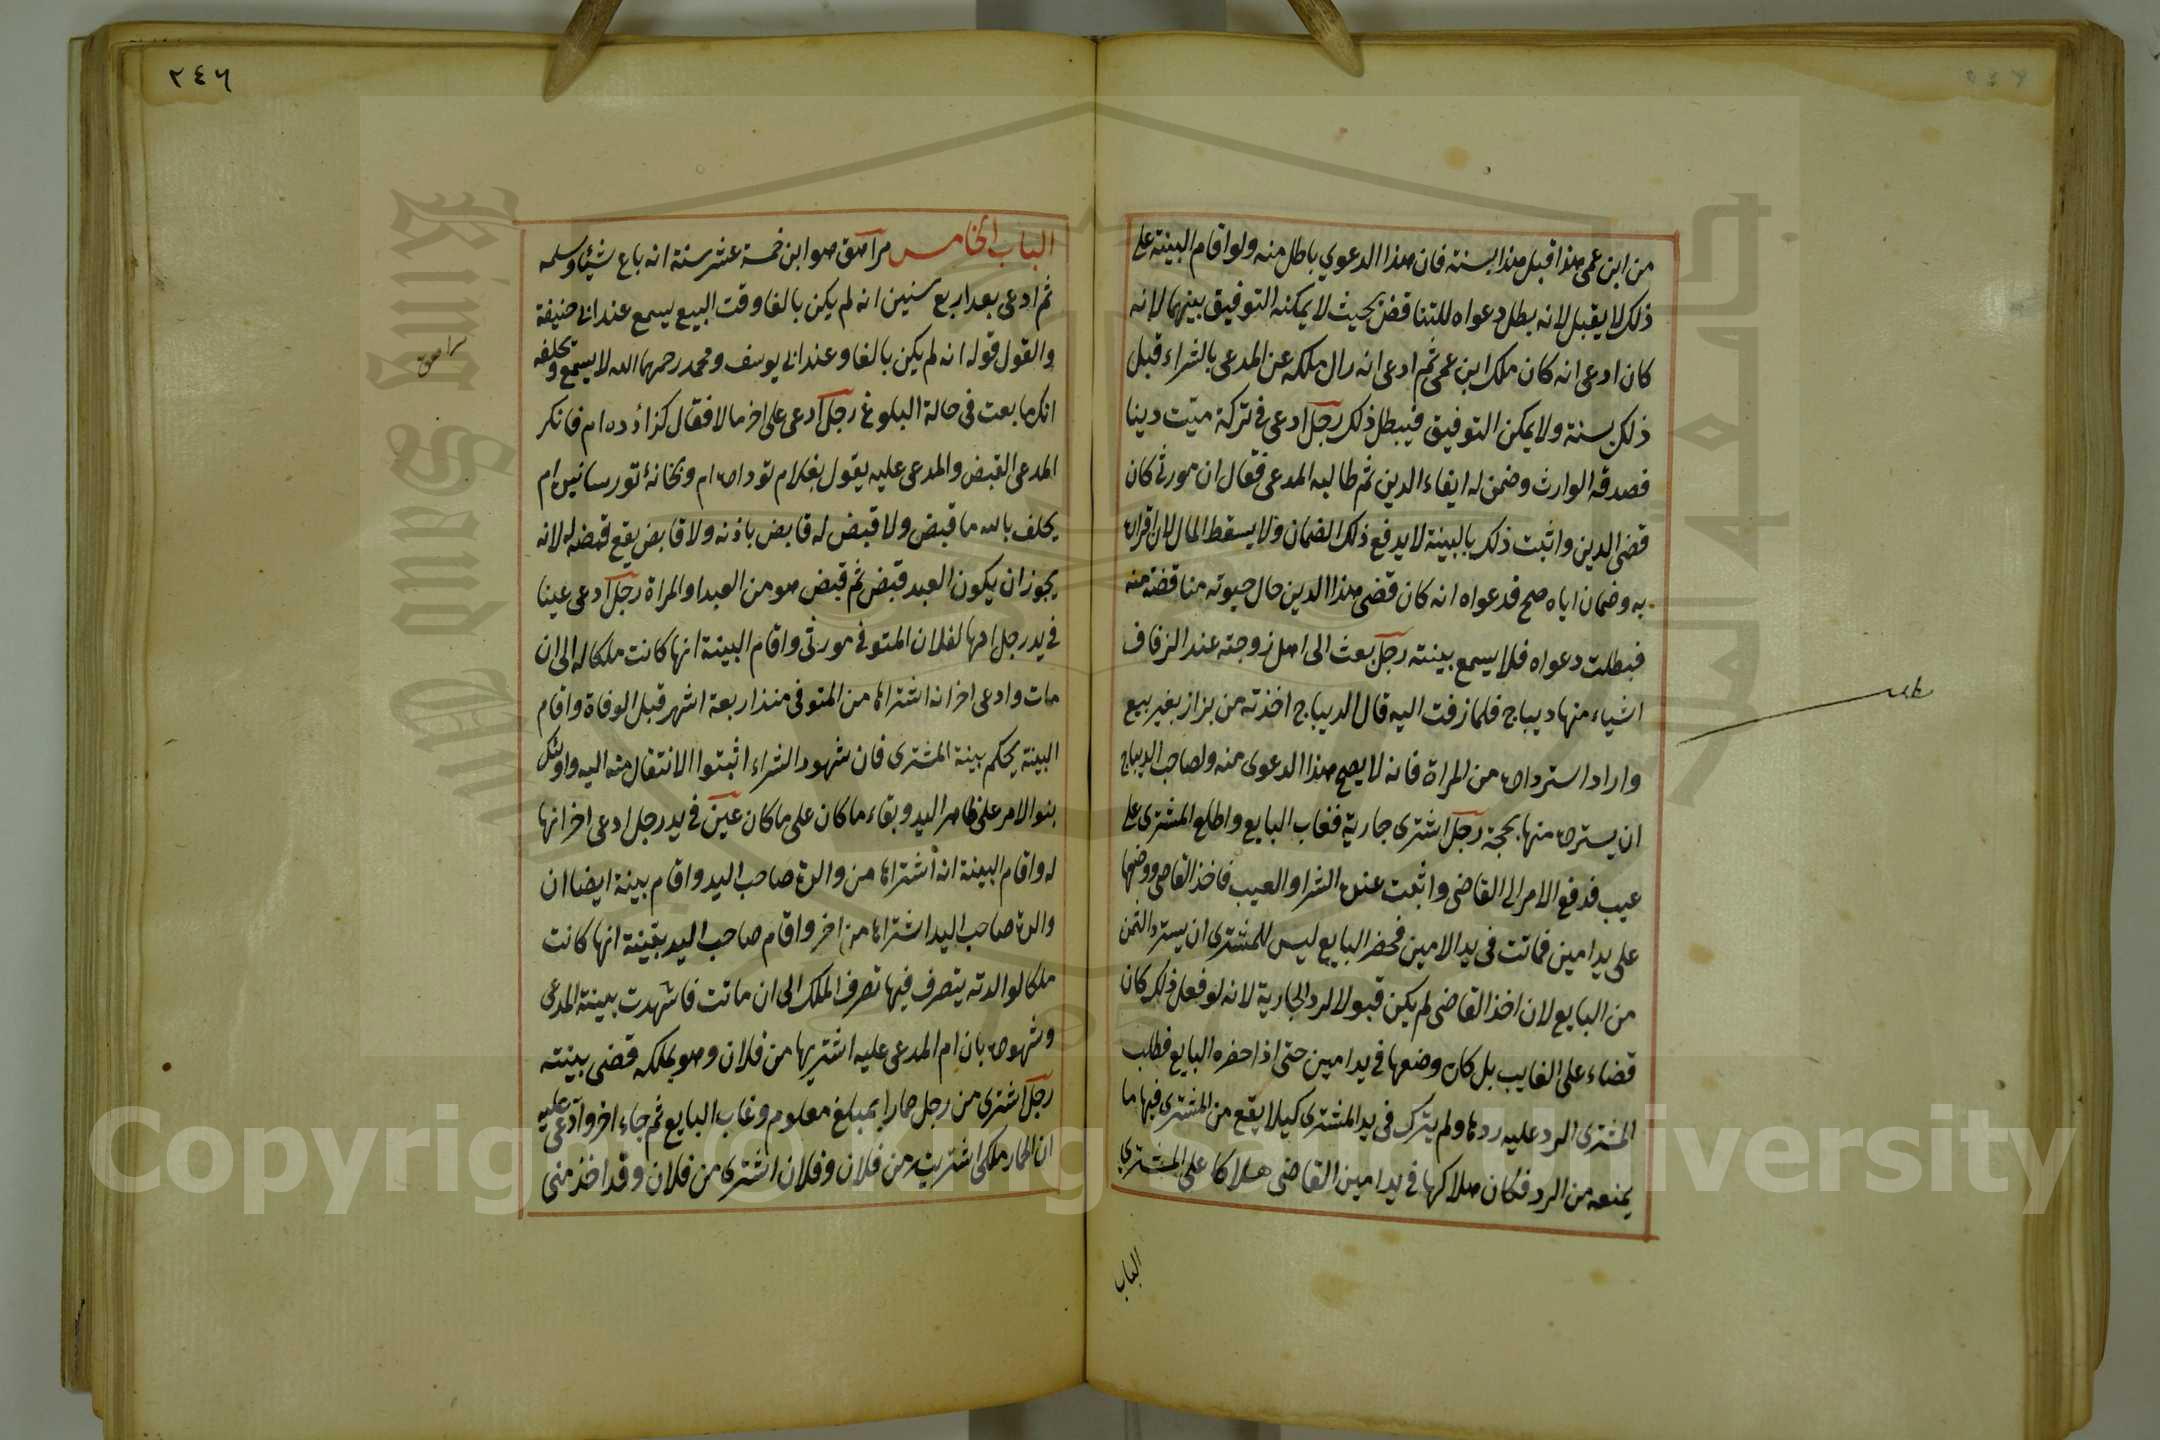 من ابن عمى هذا قبل هذا بسنة فان هذا الدعوي باطل منه ولو اقام البينة على
ذلك لا يقبل لانه بطل دعواه للتناقض بحيث لا يمكنه التوفيق بينهما لانه
كان ادعى انه كان ملك ابن عمى ثم ادعى انه زال ملكه عن المدعى بالشراء قبل
ذلك بسنة ولا يمكن التوفيق فيبطل ذلك رجل ادعى في تركة ميت دينا
فصدقه الوارث وضمن له ايفاء الدين ثم طالبه المدعى فقال ان مورثى كان
قضى الدين واثبت ذلك بالبينة لا يدفع ذلك الضمان ولا يسقط المال لان اقراره
به وضمان اياه صح فدعواه انه كان قضى هذا الدين حال حيوته مناقضة منه
فبطلت دعواه فلا يسمع بينته رجل بعث الى اهل زوجته عند الزفاف
اشياء منها ديباج فلما زفت اليه قال الديباج اخذته من بزاز بغير بيع
واراد استرداده من المراة فانه لا يصح هذا الدعوى منه ولصاحب الديباج
ان يسترده منها بحجة رجل اشترى جارية فغاب البايع واطلع المشترى على
عيب فدفع الامر الى القاضى واثبت عنده الشرا والعيب فاخذ القاضى ووضعها
على يد امين فماتت في يد الامين فحضر البايع ليس للمشترى ان يسترد الثمن
من البايع لان اخذ القاضى لم يكن قبولا لرد الجارية لانه لو فعل ذلك كان
قضاء على الغايب بل كان وضعها في يد امين حتى اذا حضره البايع فطلب
المشترى الرد عليه ردها ولم يترك في يد المشترى كيلا يقع من المشترى فيها ما
يمنعه من الرد فكان هلاكها في يد امين القاضى هلاكا على المشتري
الباب
٢٤٦
الباب الخامس مراهق هو ابن خمسة عشر سنة انه باع شيئا وسلمه
ثم ادعى بعد اربع سنين انه لم يكن بالغا وقت البيع يسمع عند ابى حنيفة
والقول قوله انه لم يكن بالغا وعند ابى يوسف ومحمد رحمهما الله لا يسمع وتحلفه
انك ما بعت في حالة البلوغ رجل ادعى على اخر مالا فقال كزارده ام فانكر
المدعى القبض والمدعى عليه يقول بغلام تو داده ام وبخانه تو رسانيده ام
يحلف بالله ما قبض ولا قبض له قابض باذنه ولا قابض يقع قبضه له لانه
يجوز ان يكون العبد قبض ثم قبض هو من العبد او المراة رجل ادعى عينا
في يد رجل انها لفلان المتوفى مورثى واقام البينة انها كانت ملكا له الى ان
مات وادعى اخر انه اشتراها من المتوفى منذ اربعة اشهر قبل الوفاة واقام
البينة يحكم ببينة المشترى فان شهود الشراء اثبتوا الانتقال منه اليه واولئك
بنوا الامر على ظاهر اليد وبقاء ما كان على ما كان عين في يد رجل ادعى اخر انها
له واقام البينة انه اشتراها من والدة صاحب اليد واقام بينة ايضا ان
والدة صاحب اليد اشتراها من اخر واقام صاحب اليد بينة انها كانت
ملكا لوالدته يتصرف فيها تصرف الملك الى ان ماتت فاشهدت ببينة المدعى
وشهوده بان ام المدعى عليه اشتريها من فلان وهو يملكه قضى ببينته
رجل اشترى من رجل حمارا بمبلغ معلوم وغاب البايع ثم جاء اخر وادعى عليه
ان الحمار ملكى اشتريته من فلان وفلان اشترى من فلان وقد اخذ منى
مراهق
Copyright © King Saud University